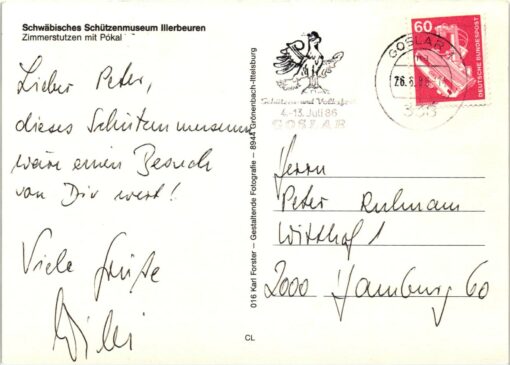 Schwäbisches Schützenmuseum Illerbeuren
Zimmerstutzen mit Pokal
Lieber Peter,
dieses Schützenmuseum
wäre einen Besuch
von Dir wert!
Viele Grüße
Willi
016 Karl Forster – Gestaltende Fotografie – 8944 Grönenbach-Ittelsburg
CL
Schützen- und Volksfest
4.-13. Juli 86
GOSLAR
GOSLAR 1
26.6.86
338
60
DEUTSCHE BUNDESPOST
Herrn
Peter Ruhmann
Witthof 1
2000 Hamburg 60